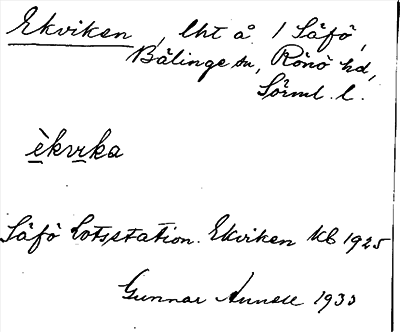 Ekviken, lht å 1 Säfö,
Bälinge sn, Rönö hd,
Sörml. l.
èkvika
Säfö Lotsstation. Ekviken Kb 1925
Gunnar Annell 1933